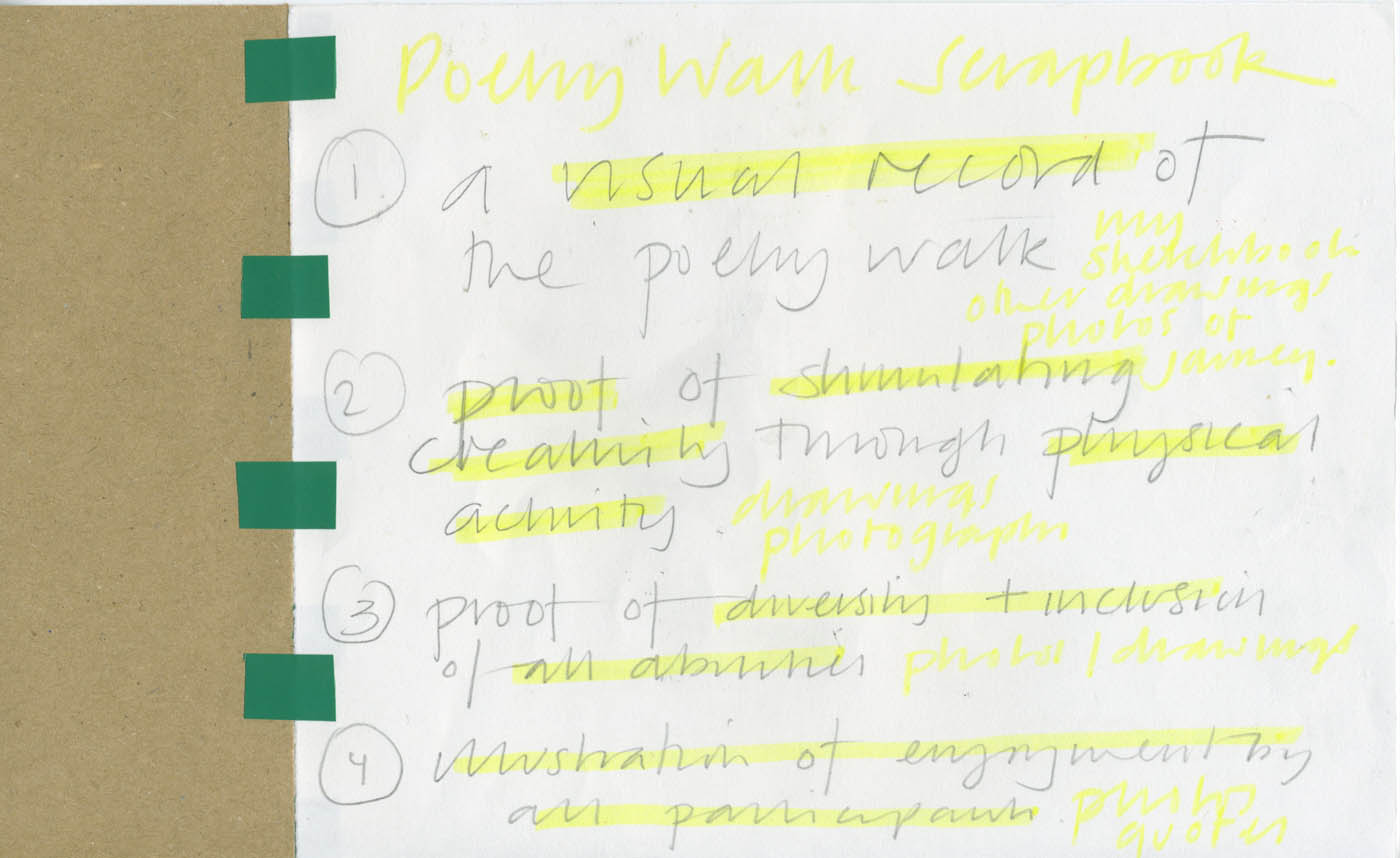 Poetry Walk Scrapbook
① a visual record of
the poetry walk
my
sketchbook
other drawings
photos of
② proof of stimulating
creativity through physical
activity.
drawings
photographs
③ proof of diversity + inclusion
of all abilities photos / drawings
④ illustration of enjoyment by
all participants. photos
quotes